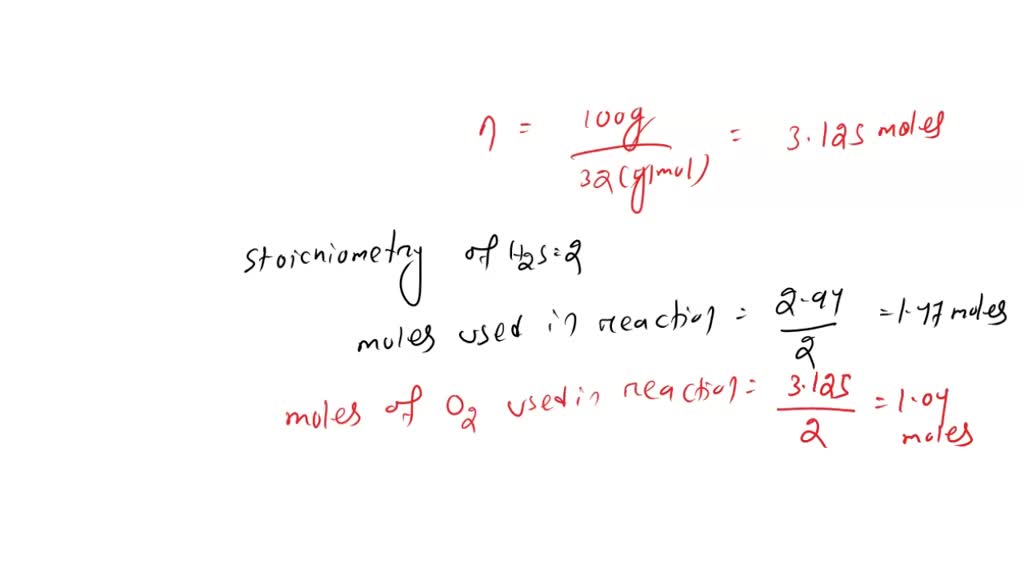 η = 100g / 32(g/mol) = 3.125 moles
stoichiometry of H2S=2
moles used in reaction = 2.94 / 2 = 1.47 moles
moles of O2 used in reaction = 3.125 / 2 = 1.04 moles